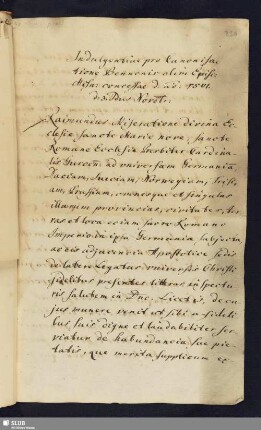 Indulgentiae pro Canonisa-
tione Bennonis olim Episc.
Misn: concessae d. ad.
Raimundus Miseratione divina Ec-
clesie sancte Marie nove, sancte
Romane Ecclesie Presbiter Cardina-
lis Gurcen: ad universam Germaniam
Daciam, Sueciam, Norwegiam, Frisi-
am, Prusiam, omnesque et singulas
illarum provincias, civitates, ter-
ras et loca eciam sacro Romano
Imperio in ipsa Germania subjecta
ac eis adjacencia Apostolice sedis
de latere Legatus universis Christi
fidelibus presentes litteras inspectu-
ris salutem in Dno. Licet is, de cu-
jus munere venit ut sibi a fideli-
bus suis digne et laudabiliter ser-
viatur de habundancia sue pie-
tatis, que merita supplicum ex-
SLUB